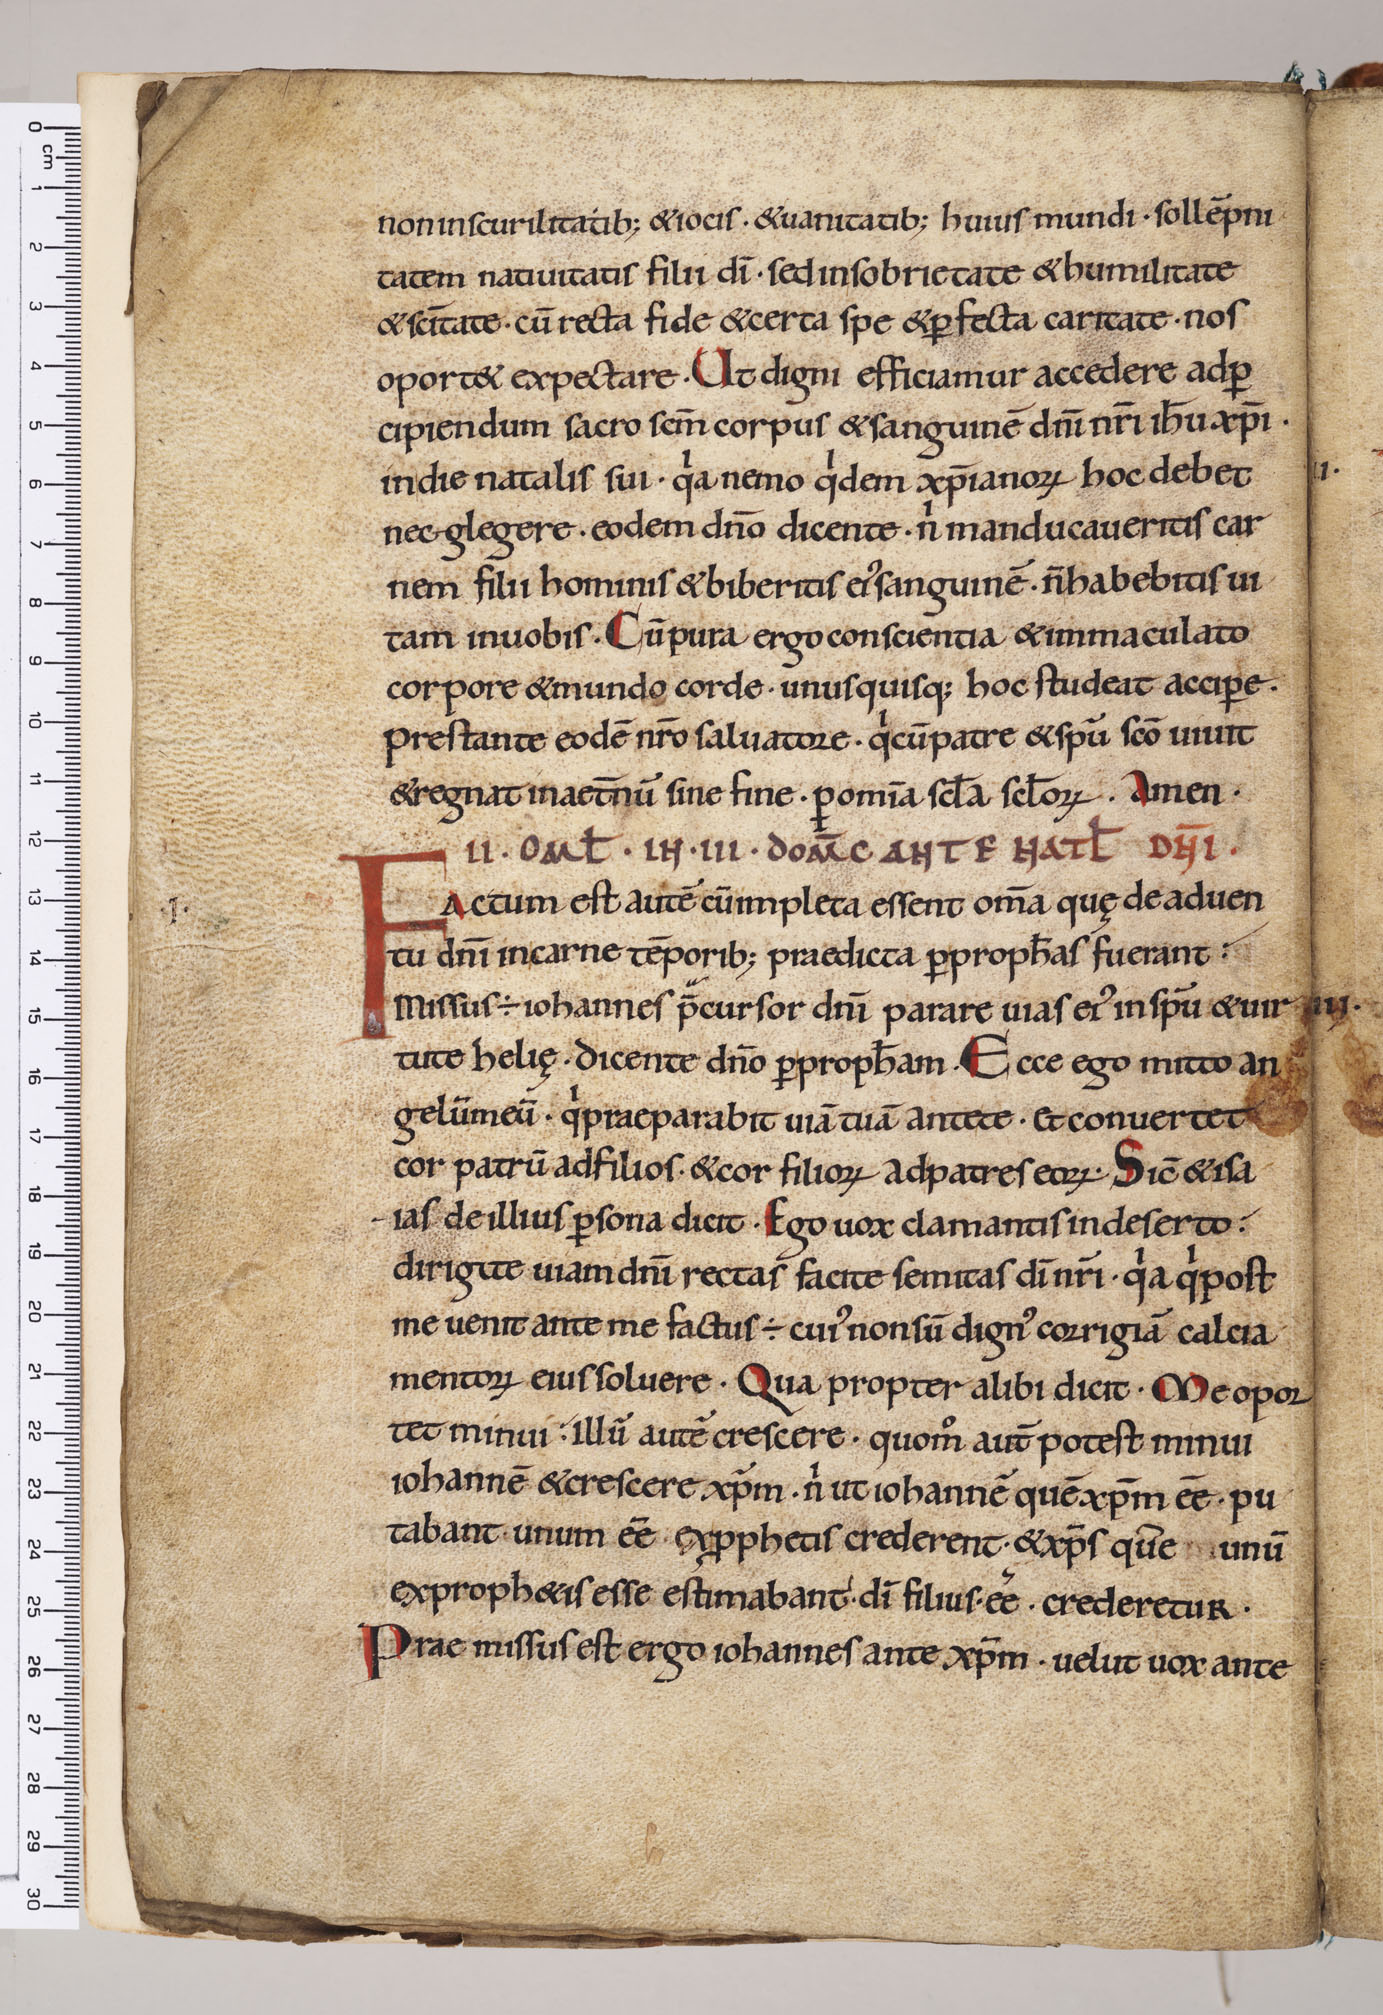 non inscurilitatib; &iocis · &uanitatib; huius mundi · sollēpni
tatem natiuitatis filii dī · sed insobrietate &humilitate
&scītate · cū recta fide &certa spe &ꝑfecta caritate · nos
oport& expectare · Ut digni efficiamur accedere adꝑ
cipiendum sacro scm̄ corpus &sanguinē dn̄i nr̄i ih̄u xp̄i ·
indie natalis sui · qͥa nemo qͥdem xp̄ianoꝝ hoc debet
nec glegere · eodem dn̄o dicente · nͥ manducaueritis car
nem filii hominis &biberitis eiꝰ sanguinē · n̄ habebitis ui
tam inuobis · Cū pura ergo conscientia &immaculato
corpore &mundo corde · unusquisq; hoc studeat acciꝑe ·
prestante eodē nr̄o saluatore · qͥ cū patre &spū scō uiuit
&regnat inaet̄nū sine fine · ꝑ om̄ia scl̄a scl̄oꝝ · Amen ·
II · OML̄ · IN · III · DOM̄C ANTE NATL̄ DN̄I ·
Factum est autē cū impleta essent om̄a quę de aduen
tu dn̄i incarne tēporib; praedicta ꝑproph̄as fuerant :
Missus ÷ iohannes p̄cursor dn̄i parare uias eiꝰ in spū &uir
tute helię · dicente dn̄o ꝑproph̄am · Ecce ego mitto an
gelū meū · qͥ praeparabit uiā tuā ante te · et conuertet
cor patrū adfilios · &cor filioꝝ adpatres eoꝝ · Sic̄ &isa
ias de illius ꝑsona dicit · Ego uox clamantis indeserto :
dirigite uiam dn̄i rectas facite semitas dī nr̄i · qͥa qͥ post
me uenit ante me factus ÷ cuiꝰ non sū dignꝰ corrigiā calcia
mentoꝝ eius soluere · Qua propter alibi dicit · Me opor
tet minui : illū autē crescere · quom̊ aut̄ potest minui
iohannē &crescere xp̄m · nͥ ut iohannē quē xp̄m ēē · pu
tabant · unum ēē exꝓphetis crederent · &xp̄s quē unū
exproph&is esse estimabant · dī filius · ēē · crederetur ·
Prae missus est ergo iohannes ante xp̄m · uelut uox ante
·I·
II·
III·